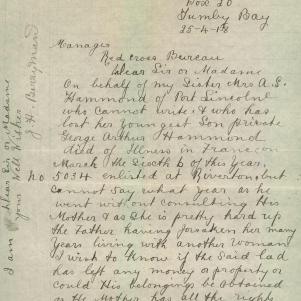 Box 20
Tumby Bay
25-4-18
Manager
Red Cross Bureau
Dear Sir or Madame
On behalf of my Sister Mrs A. S.
Hammond of Port Lincoln
who Cannot write & who has
lost her youngest Son private
George Arthur Hammond
died of Illness in France on
March the 6 of this year.
No 5034 enlisted at Riverton, but
Cannot Say what year as he
went without consulting His
Mother & as She is pretty hard up
the Father having forsaken her many
Years living with another Woman
I wish to know if the Said lad
has left any money or property or
could His belongings be obtained
as the Mother has all the rights
I am Dear Sir or Madame
your Well Wisher
J. H. Berryman